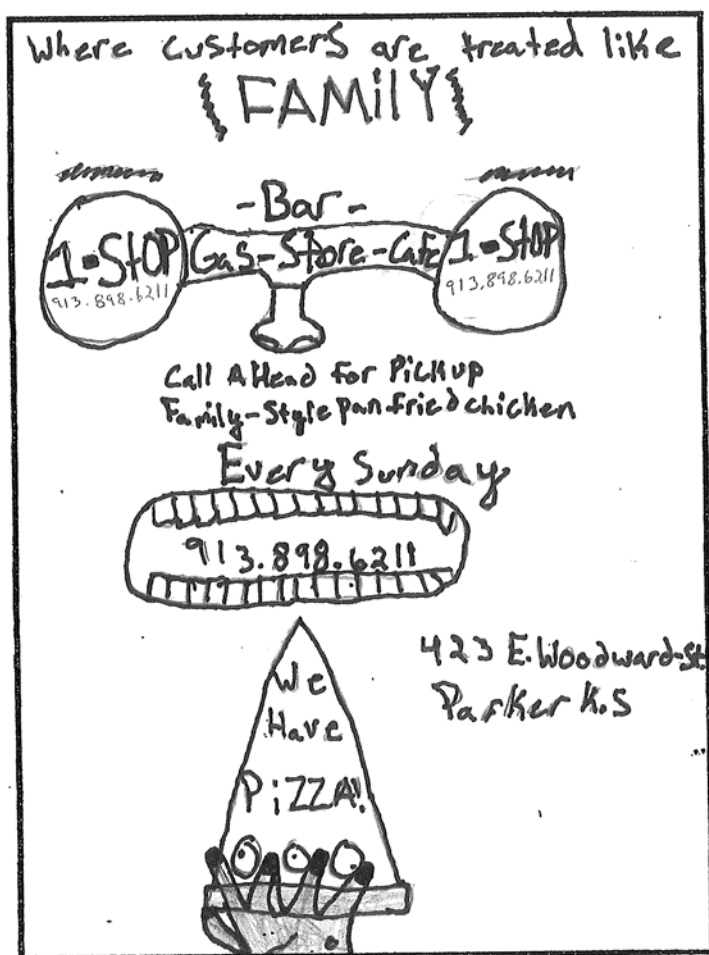 Where customers are treated like
{FAMilY}
-Bar-
1-StOP
913.898.6211
Gas-Store-Cafe
1-StOP
913.898.6211
Call AHead for Pickup
Family-Style panfried chicken
Every Sunday
913.898.6211
423 E. Woodward-St
Parker K.S
We
Have
PiZZA!